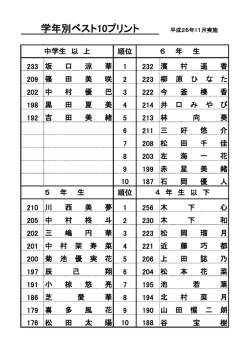 学年別ベスト10プリント 平成26年11月実施
中学生 以 上 順位 6 年 生
233 坂 口 涼 華 1 232 濱 村 遥 香
209 篠 田 美 咲 2 223 柳 原 ひ な た
202 中 村 優 巴 3 222 今 釜 榛 香
198 黒 田 夏 美 4 214 井 口 み や び
192 吉 田 美 緒 5 213 林 向 葵
6 211 三 好 悠 介
7 208 松 田 千 佳
8 203 左 海 一 花
9 199 赤 星 美 緒
10 187 石 岡 優 人
5 年 生 順位 4 年 生 以 下
210 川 西 美 夢 1 256 木 下 心
205 中 村 柊 斗 2 230 木 下 和
202 三 嶋 円 華 3 223 松 岡 瑠 月
201 中 村 架 寿 菜 4 221 近 藤 巧 都
200 菊 池 優 実 花 5 206 上 田 誌 乃
197 辰 己 翔 6 204 松 本 花 菜
191 小 椋 悠 亮 7 195 池 若 葉
186 芝 愛 華 8 194 北 村 菜 月
179 喜 多 風 花 9 190 山 田 惺 二 朗
176 松 田 太 陽 10 188 谷 宝 樹